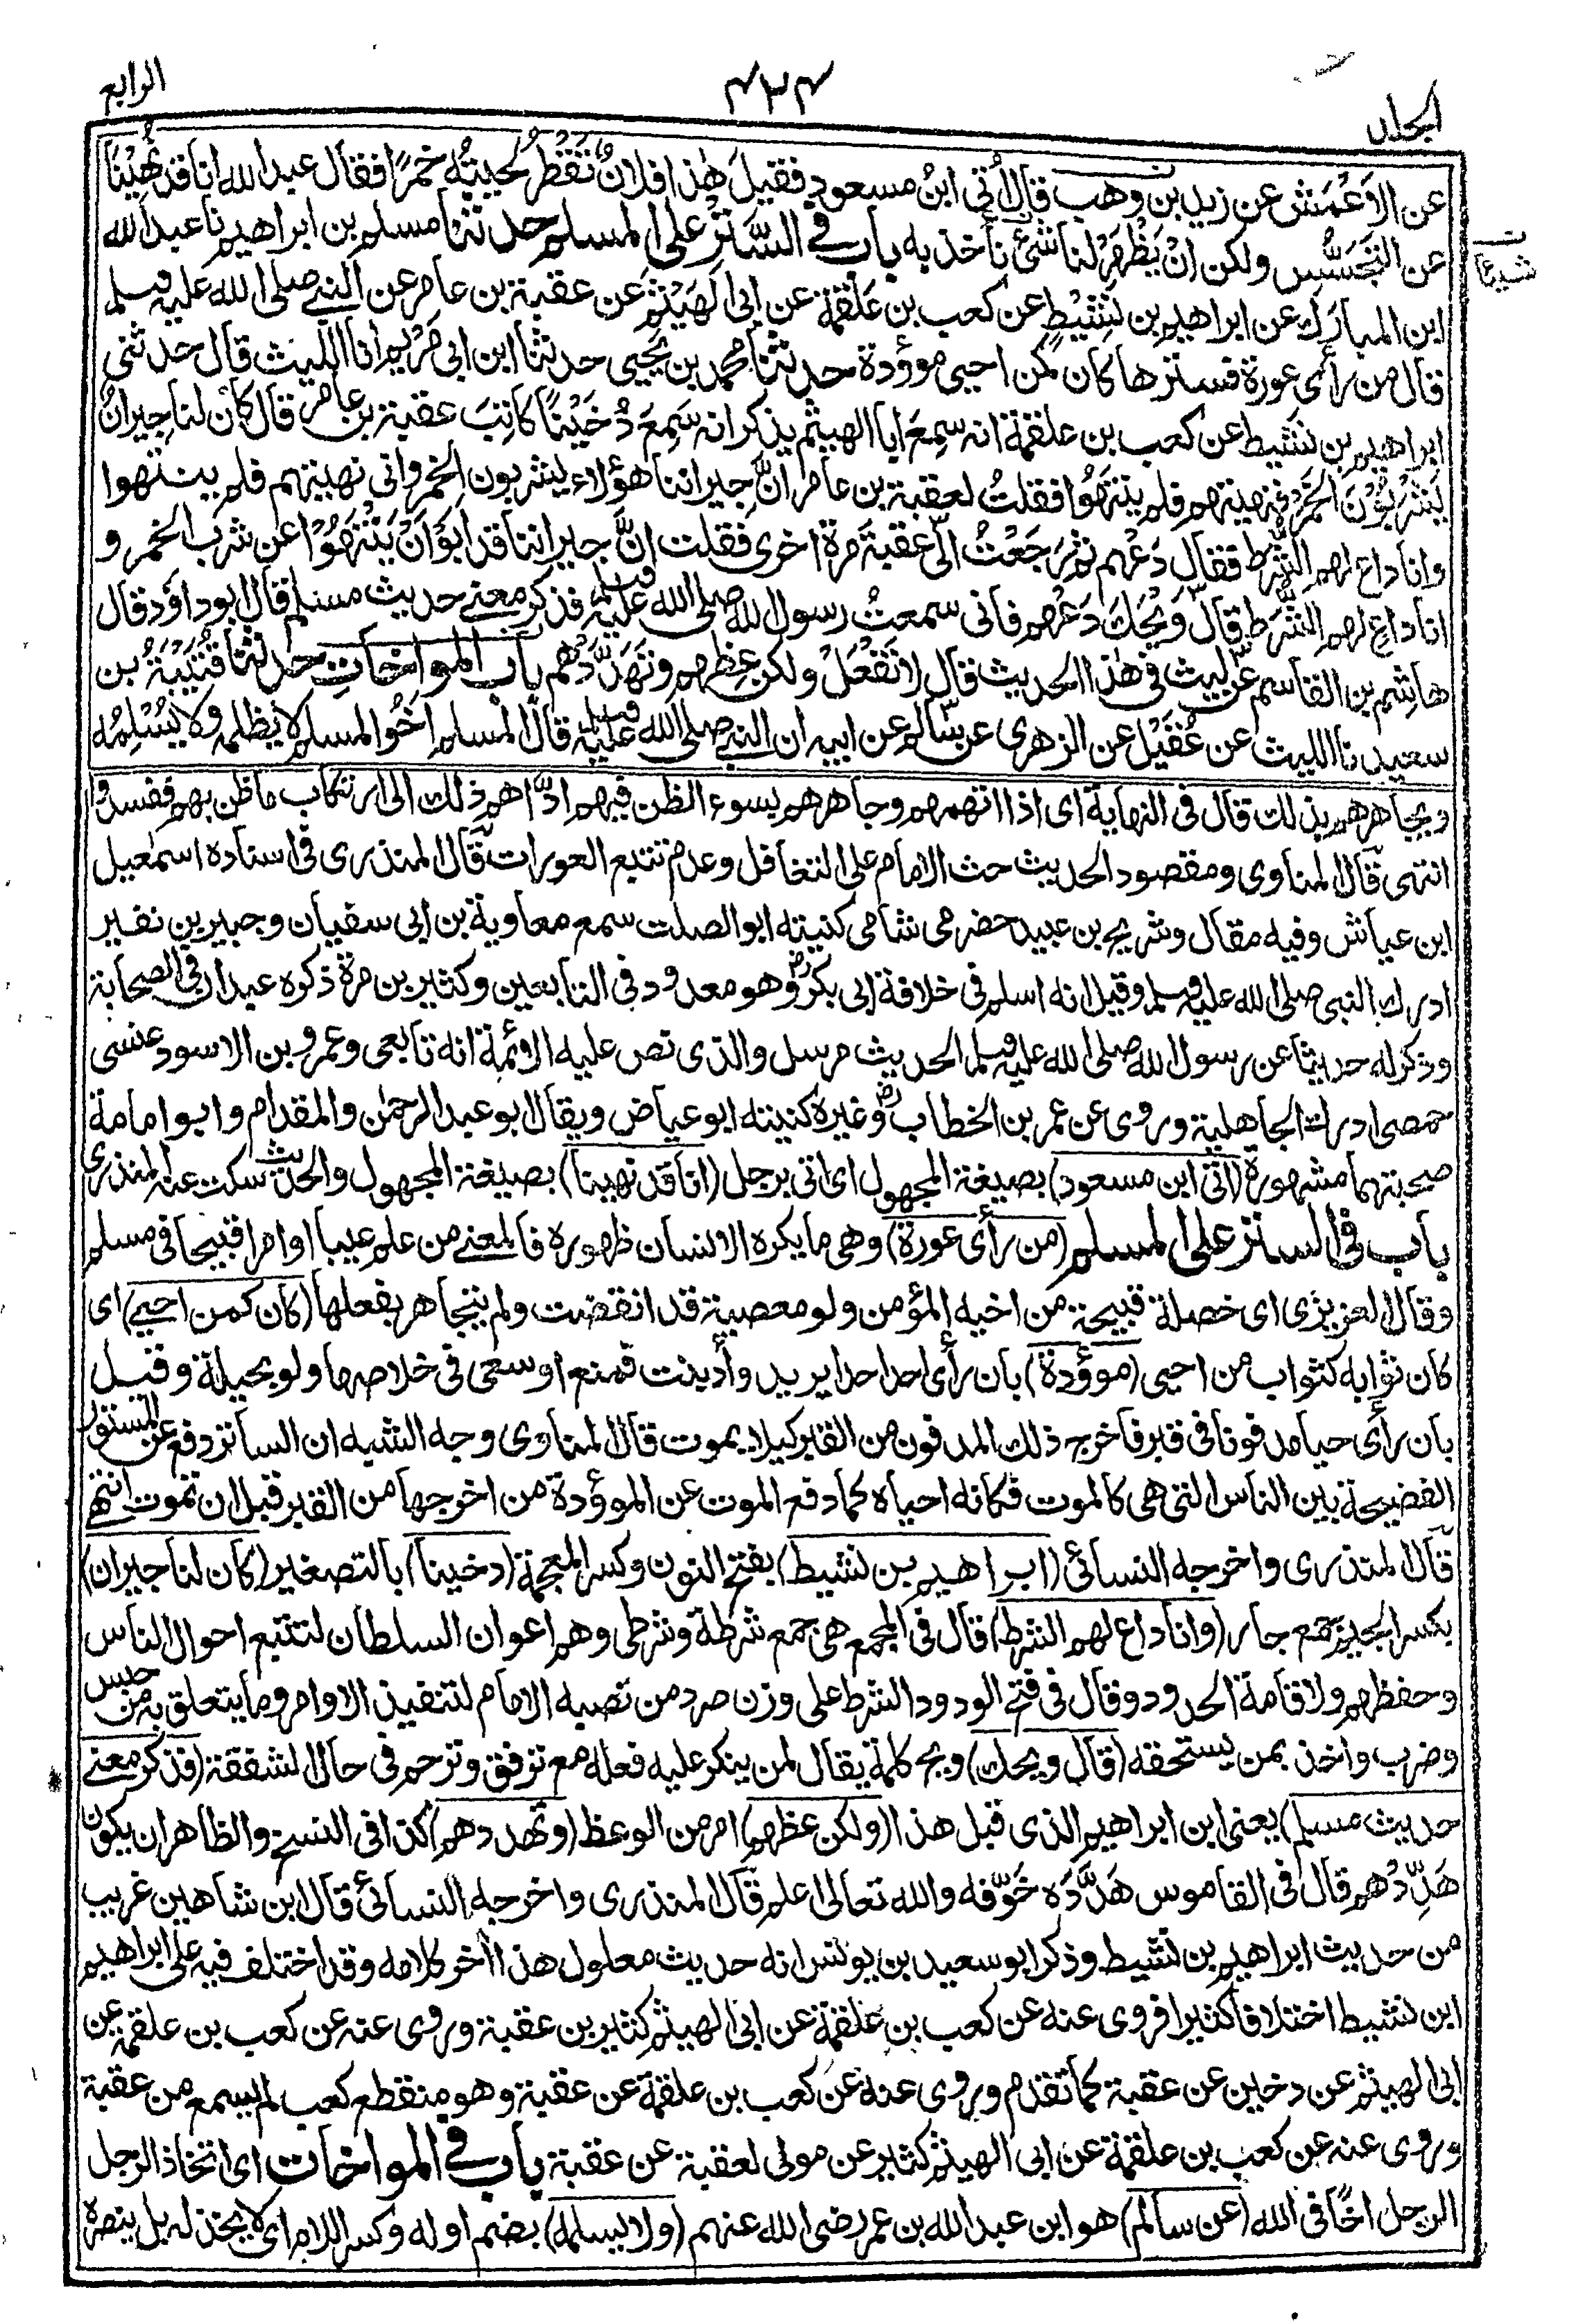 المجلد
٤٢٤
الرابع
عن الاَعْمَش عن زيد بن وهب قال أُتي ابنُ مسعود فقيل هٰذا فلانٌ تَقْطُرُ لحيتُه خمرًا فقال عبد الله انا قد نُهِيْنَا
عن التَّجَسُّسِ ولكن اِنْ يَظْهَرْ لنا شئٌ نأخذ به باب في السَّتر على المسلم حدثنا مسلم بن ابراهيم نا عبد الله
شيئا
ابن المبارك عن ابراهيم بن نَشِيْطٍ عن كعب بن عَلْقَمة عن ابى الهَيْثم عن عقبة بن عامر عن النبي صلى الله عليه وسلم
قال من رأى عورة فسترها كان كمن احيى موؤدة حدثنا محمد بن يحيى حدثنا ابن ابى مَرْيم انا الليث قال حدثنى
ابراهيم بن نشيط عن كعب بن علقمة انه سمع ابا الهيثم يذكر انه سَمِعَ دُخَيْنًا كاتِبَ عقبة بن عامر قال كان لنا جِيرانٌ
يَشْرَبُوْنَ الخَمْرَ فنهيتهم فلم يَنْتَهُوا فقلتُ لعقبة بن عامر انَّ جيراننا هؤلاء يشربون الخمر وانى نهيتهم فلم ينتهوا
وانا داع لهم الشُّرَط فقال دَعْهم ثم رجَعْتُ الى عقبة مرة اخرى فقلت انَّ جيراننا قد اَبَوْا اَنْ يَنْتَهُوْا عن شرب الخمر و
انا داعٍ لهم الشُّرَط قال وَيْحَكَ دَعْهم فانى سمعتُ رسول الله صلى الله عليه وسلم فذكر معنى حديث مسلم قال ابوداؤد قال
هاشم بن القاسم عن ليث فى هٰذا الحديث قال لا تَفْعَلْ ولكن عِظْهم وتَهَدَّدْهم باب المواخات حدثنا قُتَيْبَةُ بن
سعيد نا الليث عن عُقَيْل عن الزهرى عن سالم عن ابيه ان النبي صلى الله عليه وسلم قال المسلم اخُو المسلم لا يظلمه ولا يُسْلِمُه
ويجاهرهم بذلك قال فى النهاية اى اذا اتهمهم وجاهرهم بسوء الظن فيهم ادّاهم ذلك الى ارتكاب ما ظن بهم ففسدوا
انتهى قال المناوى ومقصود الحديث حث الامام على التغافل وعدم تتبع العورات قال المنذرى فى اسناده اسمعيل
ابن عياش وفيه مقال وشريح بن عبيد حضرمى شامى كنيته ابو الصلت سمع معاوية بن ابى سفيان وجبير بن نفير
ادرك النبى صلى الله عليه وسلم وقيل انه اسلم فى خلافة ابى بكر رض وهو معدود فى التابعين وكثير بن مرة ذكره عبدان فى الصحابة
وذكر له حديثا عن رسول الله صلى الله عليه وسلم الحديث مرسل والذى نص عليه الائمة انه تابعى وعمرو بن الاسود عنسى
حمصى ادرك الجاهلية وروى عن عمر بن الخطاب رض وغيره كنيته ابو عياض ويقال ابو عبد الرحمٰن والمقدام وابو امامة
صحبتهما مشهورة (اتى ابن مسعود) بصيغة المجهول اى اتى برجل (انا قد نهينا) بصيغة المجهول والحديث سكت عنه المنذرى
باب فى الستر على المسلم (من رأى عورة) وهى ما يكره الانسان ظهوره فالمعنى من علم عيبا او امرا قبيحا فى مسلم
وقال العزيزى اى خصلة قبيحة من اخيه المؤمن ولو معصية قد انقضت ولم يتجاهر بفعلها (كان كمن احيى) اى
كان ثوابه كثواب من احيى (موؤدة) بان رأى احدا يريد وأد بنت فمنع او سعى فى خلاصها ولو بحيلة وقيل
بان رأى حيا مدفونا فى قبر فاخرج ذلك المدفون من القبر كيلا يموت قال المناوى وجه الشبه ان الساتر دفع عن المستور
الفضيحة بين الناس التى هى كالموت فكانه احياه كما دفع الموت عن الموؤدة من اخرجها من القبر قبل ان تموت انتهى
قال المنذرى واخرجه النسائى (ابراهيم بن نشيط) بفتح النون وكسر المعجمة (دخينا) بالتصغير (كان لنا جيران)
بكسر الجيم جمع جار (وانا داع لهم الشرط) قال فى المجمع هى جمع شرطة وشرطى وهم اعوان السلطان لتتبع احوال الناس
وحفظهم ولاقامة الحدود وقال فى فتح الودود الشرط على وزن صرد من نصبه الامام لتنفيذ الاوامر وما يتعلق به من حبس
وضرب واخذ بمن يستحقه (قال ويحك) ويح كلمة يقال لمن ينكر عليه فعله مع ترفق وترحم فى حال الشفقة (فذكر معنى
حديث مسلم) يعنى ابن ابراهيم الذى قبل هذا (ولكن عظهم) امر من الوعظ (وتهددهم) كذا فى النسخ والظاهر ان يكون
هَدِّدْهم قال فى القاموس هَدَّدَه خَوَّفه والله تعالى اعلم قال المنذرى واخرجه النسائى قال ابن شاهين غريب
من حديث ابراهيم بن نشيط وذكر ابو سعيد بن يونس انه حديث معلول هذا اٰخر كلامه وقد اختلف فيه على ابراهيم
ابن نشيط اختلافا كثيرا فروى عنه عن كعب بن علقمة عن ابى الهيثم كثير بن عقبة وروى عنه عن كعب بن علقمة عن
ابى الهيثم عن دخين عن عقبة كما تقدم وروى عنه عن كعب بن علقمة عن عقبة وهو منقطع كعب لم يسمع من عقبة
وروى عنه عن كعب بن علقمة عن ابى الهيثم كثير عن مولى لعقبة عن عقبة باب في المواخات اى اتخاذ الرجل
الرجل اخًا فى الله (عن سالم) هو ابن عبد الله بن عمر رضى الله عنهم (ولا يسلمه) بضم اوله وكسر اللام اى لا يخذله بل ينصره